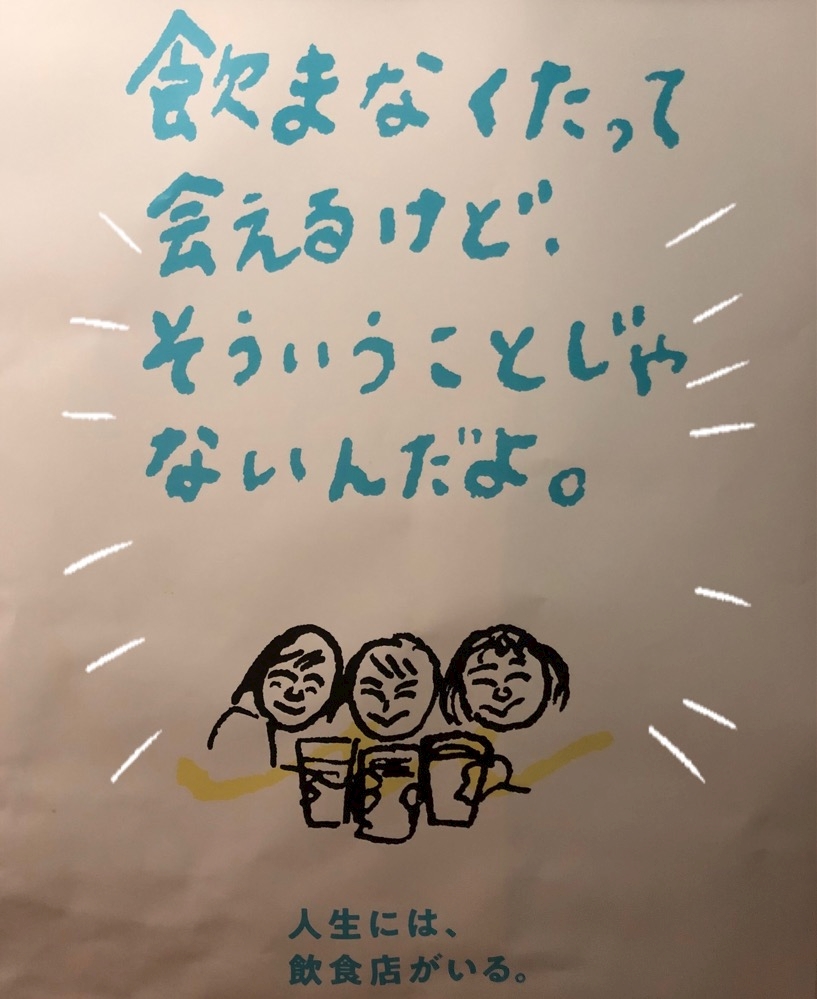 飲まなくたって
会えるけど、
そういうことじゃ
ないんだよ。
人生には、
飲食店がいる。